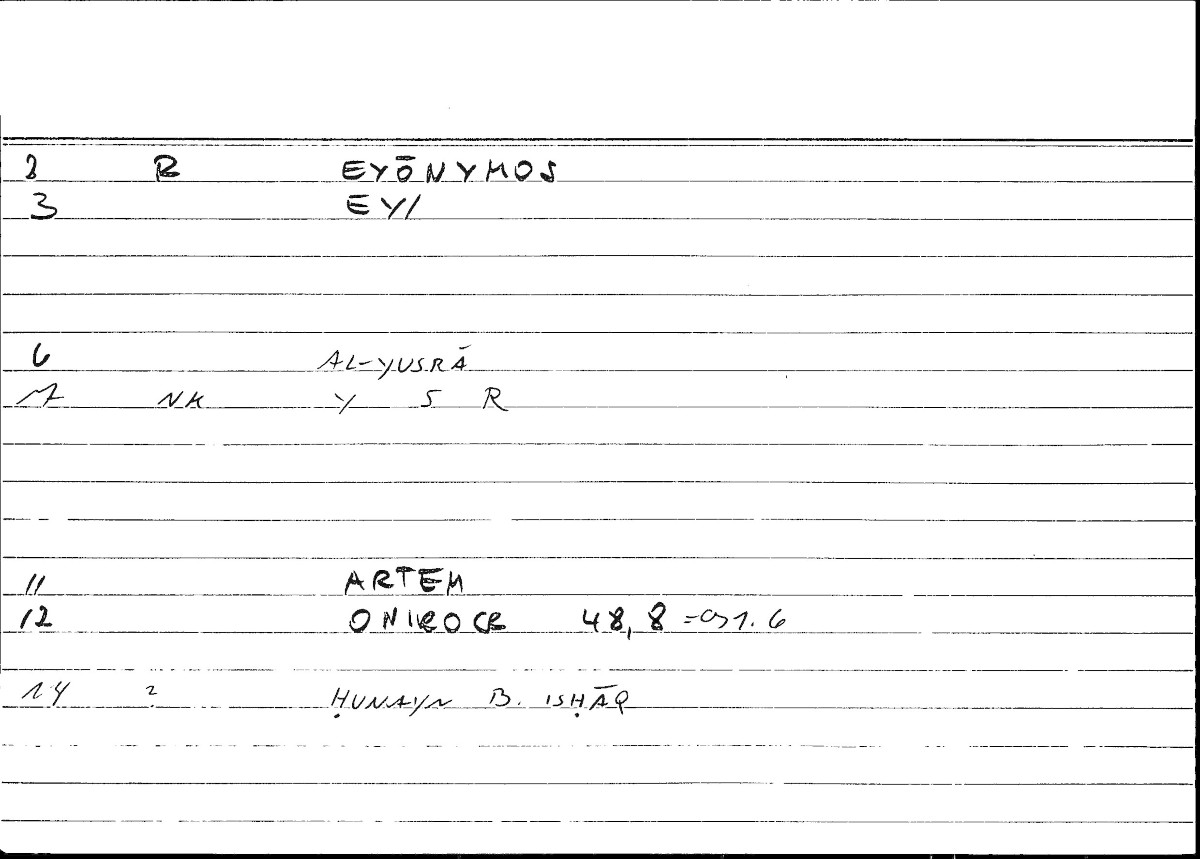 2 R EYŌNYMOS
3 EY/
6 AL-YUSRĀ
7 NK Y S R
11 ARTEM
12 ONIROCR 48,8 = 91.6
14 ? ḤUNAYN B. ISḤĀQ